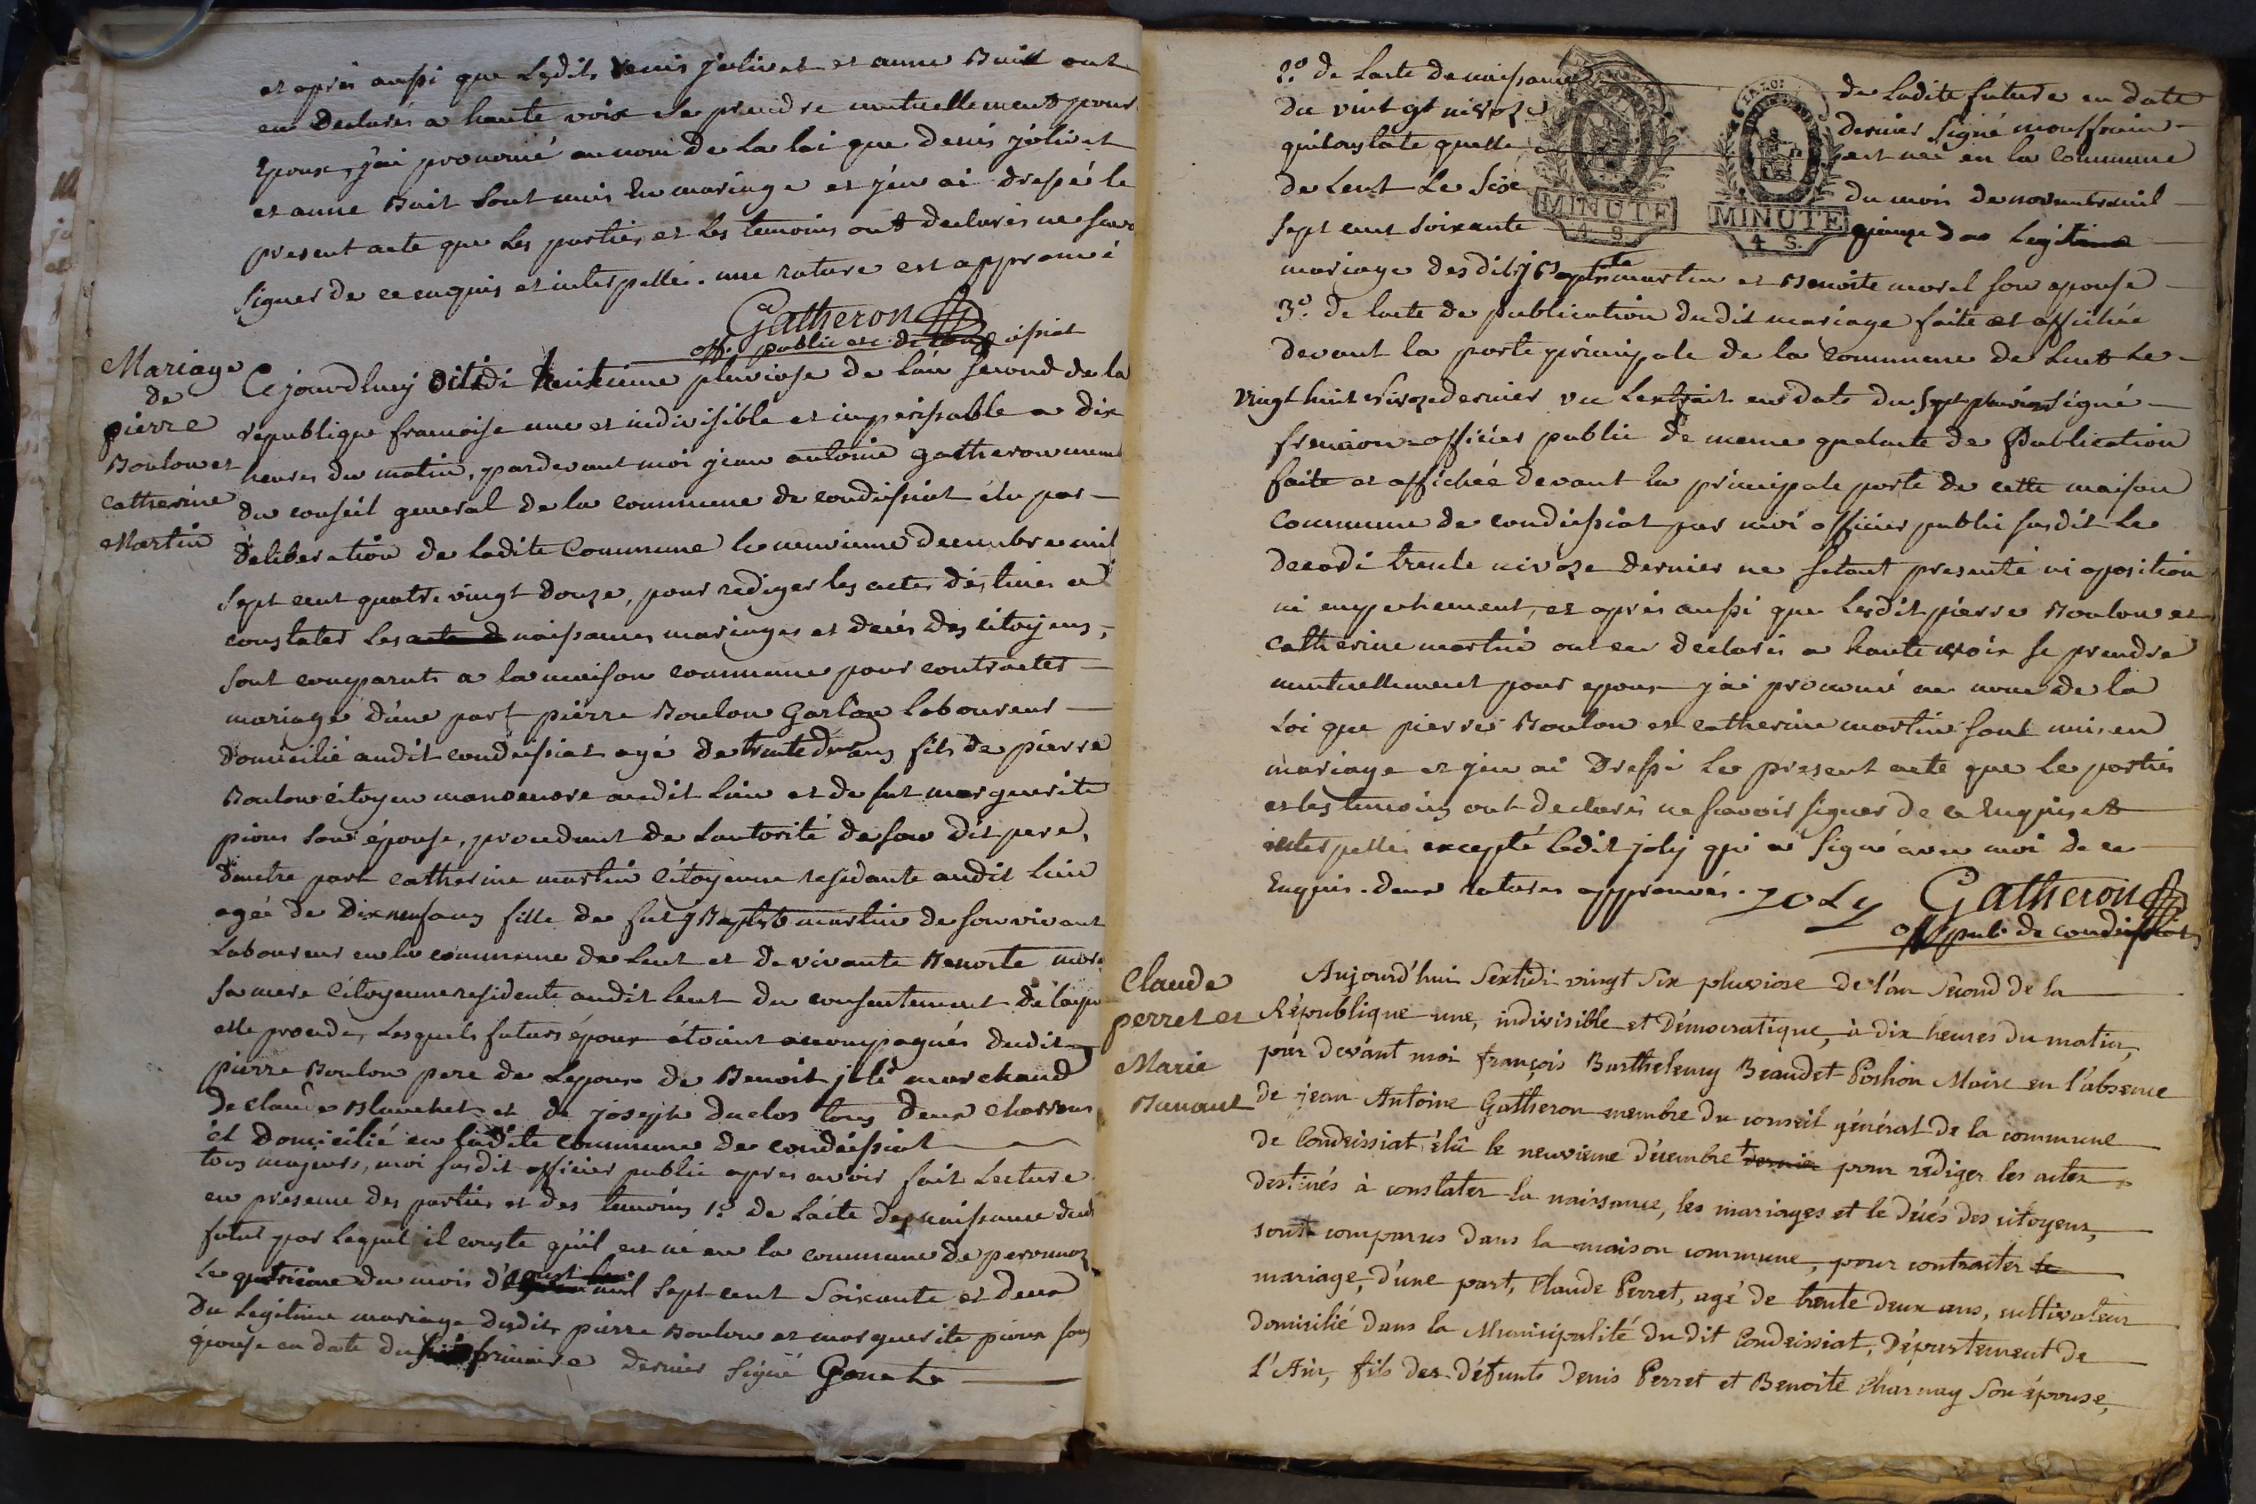 et après aussi que lesdits Denis jolivet et anne Buit ont
eu declarés a haute voix se prendre mutuellement pour
Epoux, j'ai prononcé au nom de la loi que denis jolivet
et anne Buit sont unis En mariage et j'en ai dressé le
present acte que les parties et les temoins ont declarés ne savoir
signer de ce enquis et interpellés. une rature est approuvé
Gatheron
off. public de
Mariage
de
pierre
Boulon et
Catherine
Martin
Cejourdhuy octidi huitieme pluviose de l'an second de la
republique francoise une et indivisible et imperissable a dix
heures du matin, pardevant moi jean antoine gatheron membre
du conseil general de la commune de condeissiat élu par
deliberation de ladite Commune le neuvieme decembre mil
sept cent quatre vingt douze, pour rediger les actes destinés a
constater les acte d naissances mariages et decés des citoyens,
sont comparuts a la maison commune pour contracter
mariage d'une part pierre Boulon Garçon laboureur
domicilié audit condeissiat agé de trente deux ans fils de pierre
Boulon citoyen manoeuvre audit lieu et de fut marguerite
pioux son épouse, procedant de l'autorité de son dit pere,
d'autre part catherine martin citoyenne residante audit lieu
agée de dix neuf ans fille de fut j Baptste martin de son vivant
Laboureur en la commune de Lent et de vivante Benoite
sa mere citoyenne residente audit lent du consentement de
elle procede, lesquels futurs époux étoient accompagnés dudit
pierre Boulon pere de lepoux de Benoit joli marchand
de claude Blanchet et de joseph duclos tous deux
et domicilié en ladite commune de condeissiat
tous majeurs, moi susdit officier public apres avoir fait lecture
en presence des parties et des temoins 1.º de l'acte de naissance dudit
futur par lequel il conste qu'il est né en la commune de peronnaz
le quatrieme du mois d'aoust mil sept cent soixante et deux
du legitime mariage desdits pierre Boulon et marguerite pioux son
épouse en date du frimaire dernier signé
2.º de lacte de naissance de ladite future en date
du vingt nivoze dernier signé
qui constate quelle est née en la commune
de Lent le six du mois de novembre mil
sept cent soixante quinze du legitime
mariage desdits j Baptste martin et Benoite morel son epouse
3.º de lacte de publication dudit mariage faite et affichée
devant la porte principale de la commune de Lent le
vingt huit nivoze dernier vu lextrait en date du sept pluviose signé
officier public de meme que lacte de Publication
faite et affichée devant la principale porte de cette maison
commune de condeissiat par moi officier public susdit le
decadi trente nivoze dernier ne s'etant presenté ni oposition
ni empechement, et après aussi que lesdit pierre Boulon et
catherine martin ont eu declarés a haute voix se prendre
mutuellement pour epoux j'ai prononcé au nom de la
Loi que pierre Boulon et catherine martin sont unis en
mariage et j'en ai Dressé le present acte que les parties
et les temoins ont declarés ne scavoir signer de ce Enquis et
interpellés excepté ledit joly qui a signé avec moi de ce
Enquis. deux ratures approuvés. JOLY Gatheron
off. pub. de condeissiat
MINUTE
4 S.
LA LOI
MINUTE
4 S.
Claude
perret et
Marie
Aujourd'hui Sextidi vingt six pluviose de l'an second de la
République une, indivisible et Démocratique, à dix heures du matin,
par devant moi françois Barthelemy Beaudet Poshon Maire en l'absence
de jean Antoine Gatheron membre du conseil général de la commune
de Condeissiat élû le neuvieme décembre dernier pour rédiger les actes
destinés à constater la naissance, les mariages et le décés des citoyens,
sont comparus dans la maison commune, pour contracter le
mariage, d'une part, Claude Perret, agé de trente deux ans, cultivateur
domicilié dans la Municipalité du dit Condeissiat, Département de
l'Ain, fils des défunts Denis Perret et Benoite Charnay son épouse,